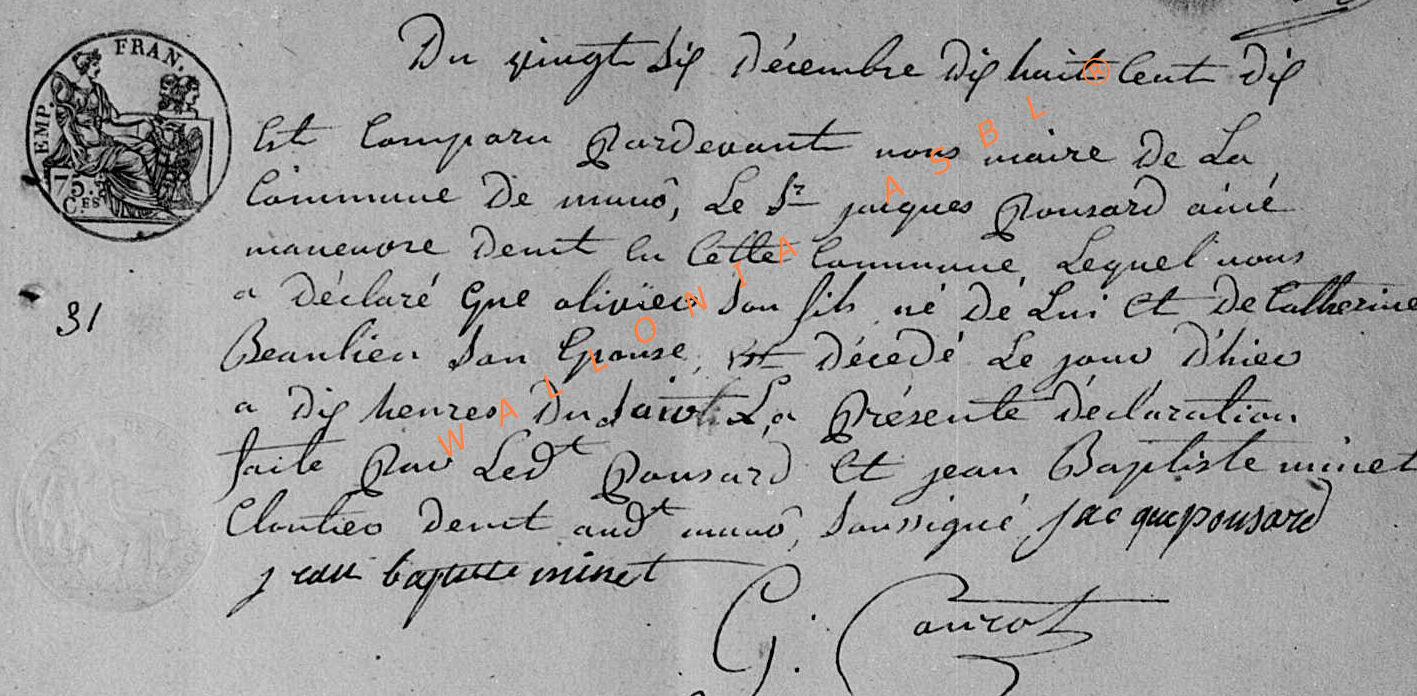 EMP. FRAN.
75.
C.ES
Du vingt six Décembre dix huit Cent dix
Est Comparu Pardevant nous maire de La
Commune De muno, Le Sr jacques Ponsard ainé
maneuvre demt en Cette Commune, Lequel nous
a Déclaré que olivier Son fils né de Lui Et de Catherine
Beaulieu Son Epouse, Est décedé Le jour D'hier
a dix heures Du La Présente déclaration
faite Par Ledt Ponsard Et jean Baptiste minet
Cloutier demt audt muno, Soussigné jacque ponsard
jean baptiste minet
G.
31
WALLONIA ASBL ®